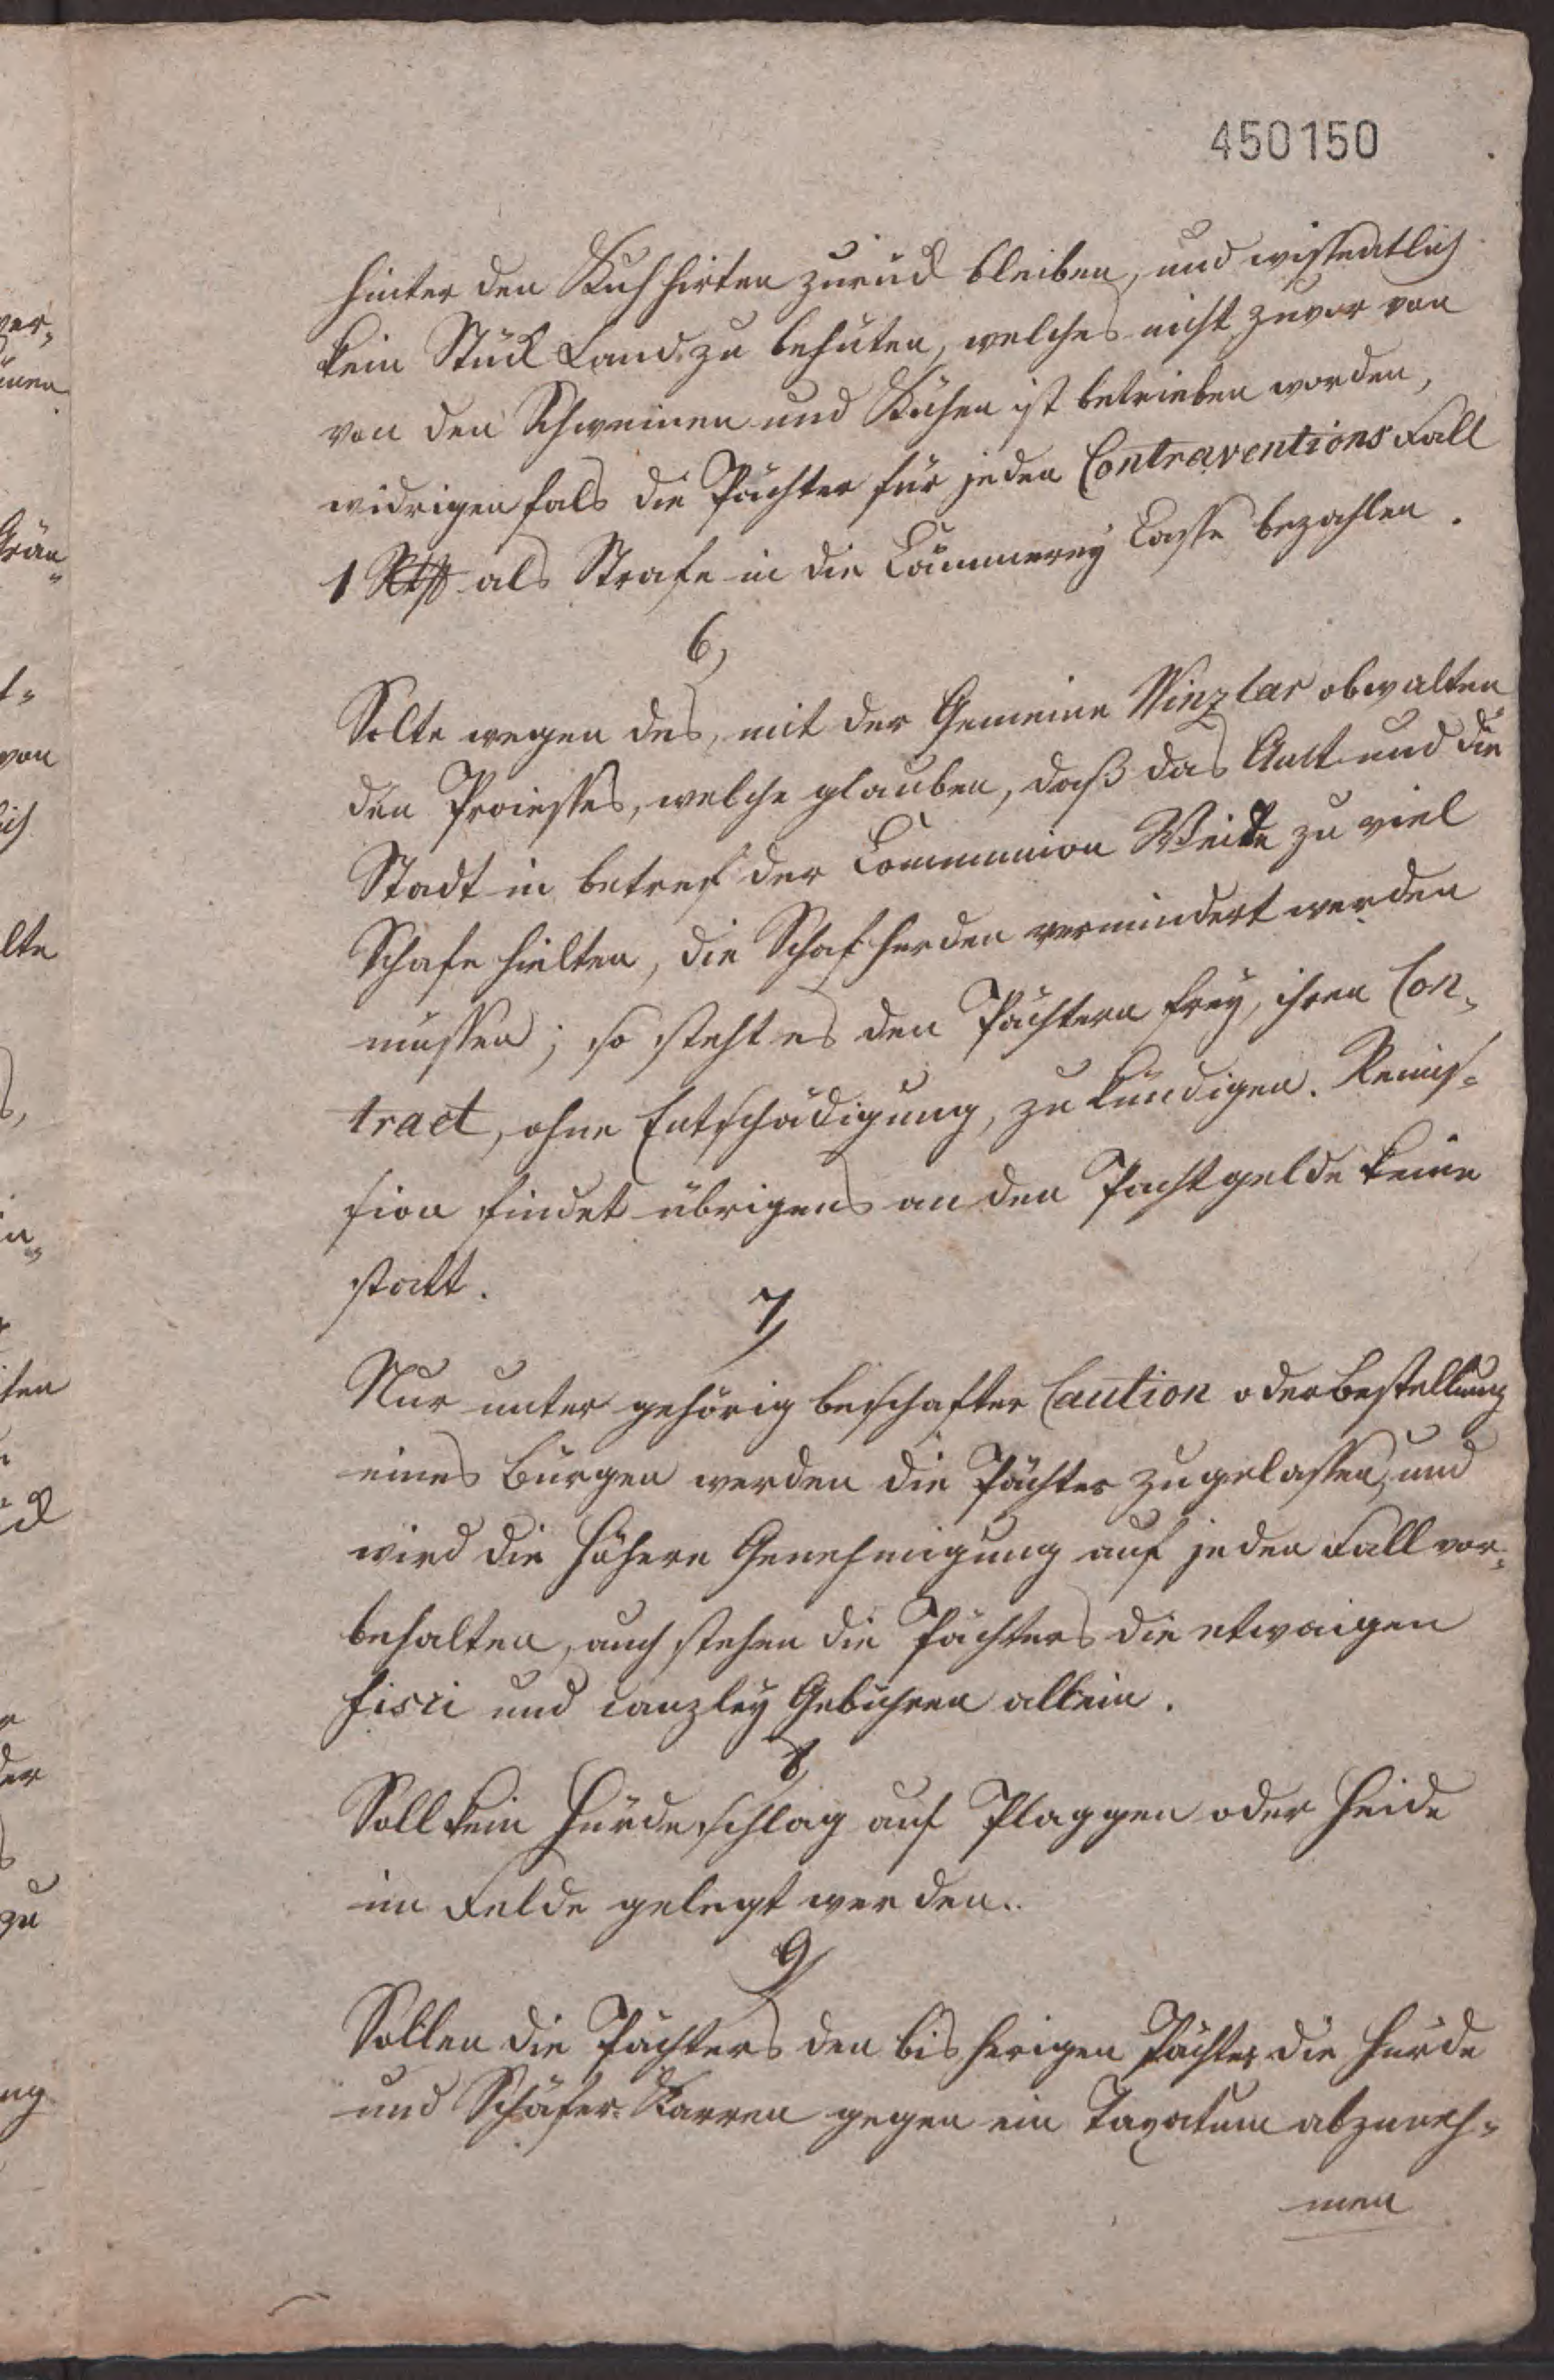 450150
hinter den Kuhhirten zurück bleiben, und wissentlich
kein Stück Land zu behüten, welches nicht zuvor von
von den Schweinen und Kühen ist betrieben worden,
widrigenfals die Pächter für jeden Contraventions Fall
1 Rthlr als Strafe in die Cämmerey Casse bezahlen.
6,
Solte wegen des, mit der Gemeine Winzlar obwalten
den Processes, welche glauben, daß das Amt und die
Stadt in betref der Communion Weide zu viel
Schafe hielten, die Schafherden vermindert werden
müssen; so steht es den Pächtern frey, ihren Con-
tract, ohne Entschädigung, zu kündigen. Remis-
sion findet übrigens an den Pachtgelde keine
statt.
7,
Nur unter gehörig beschafter Caution oder Bestellung
eines Bürgen werden die Pächter zugelassen, und
wird die höhere Genehmigung auf jeden Fall vor-
behalten, auch stehen die Pächters die etwaigen
fisci und canzley Gebühren allein.
8,
Soll kein Hürdeschlag auf Plaggen oder Heide
im Felde gelegt werden.
9,
Sollen die Pächters den bisherigen Pächter die Hürde
und Schäfer-Karren gegen ein Taxatum abzuneh-
men